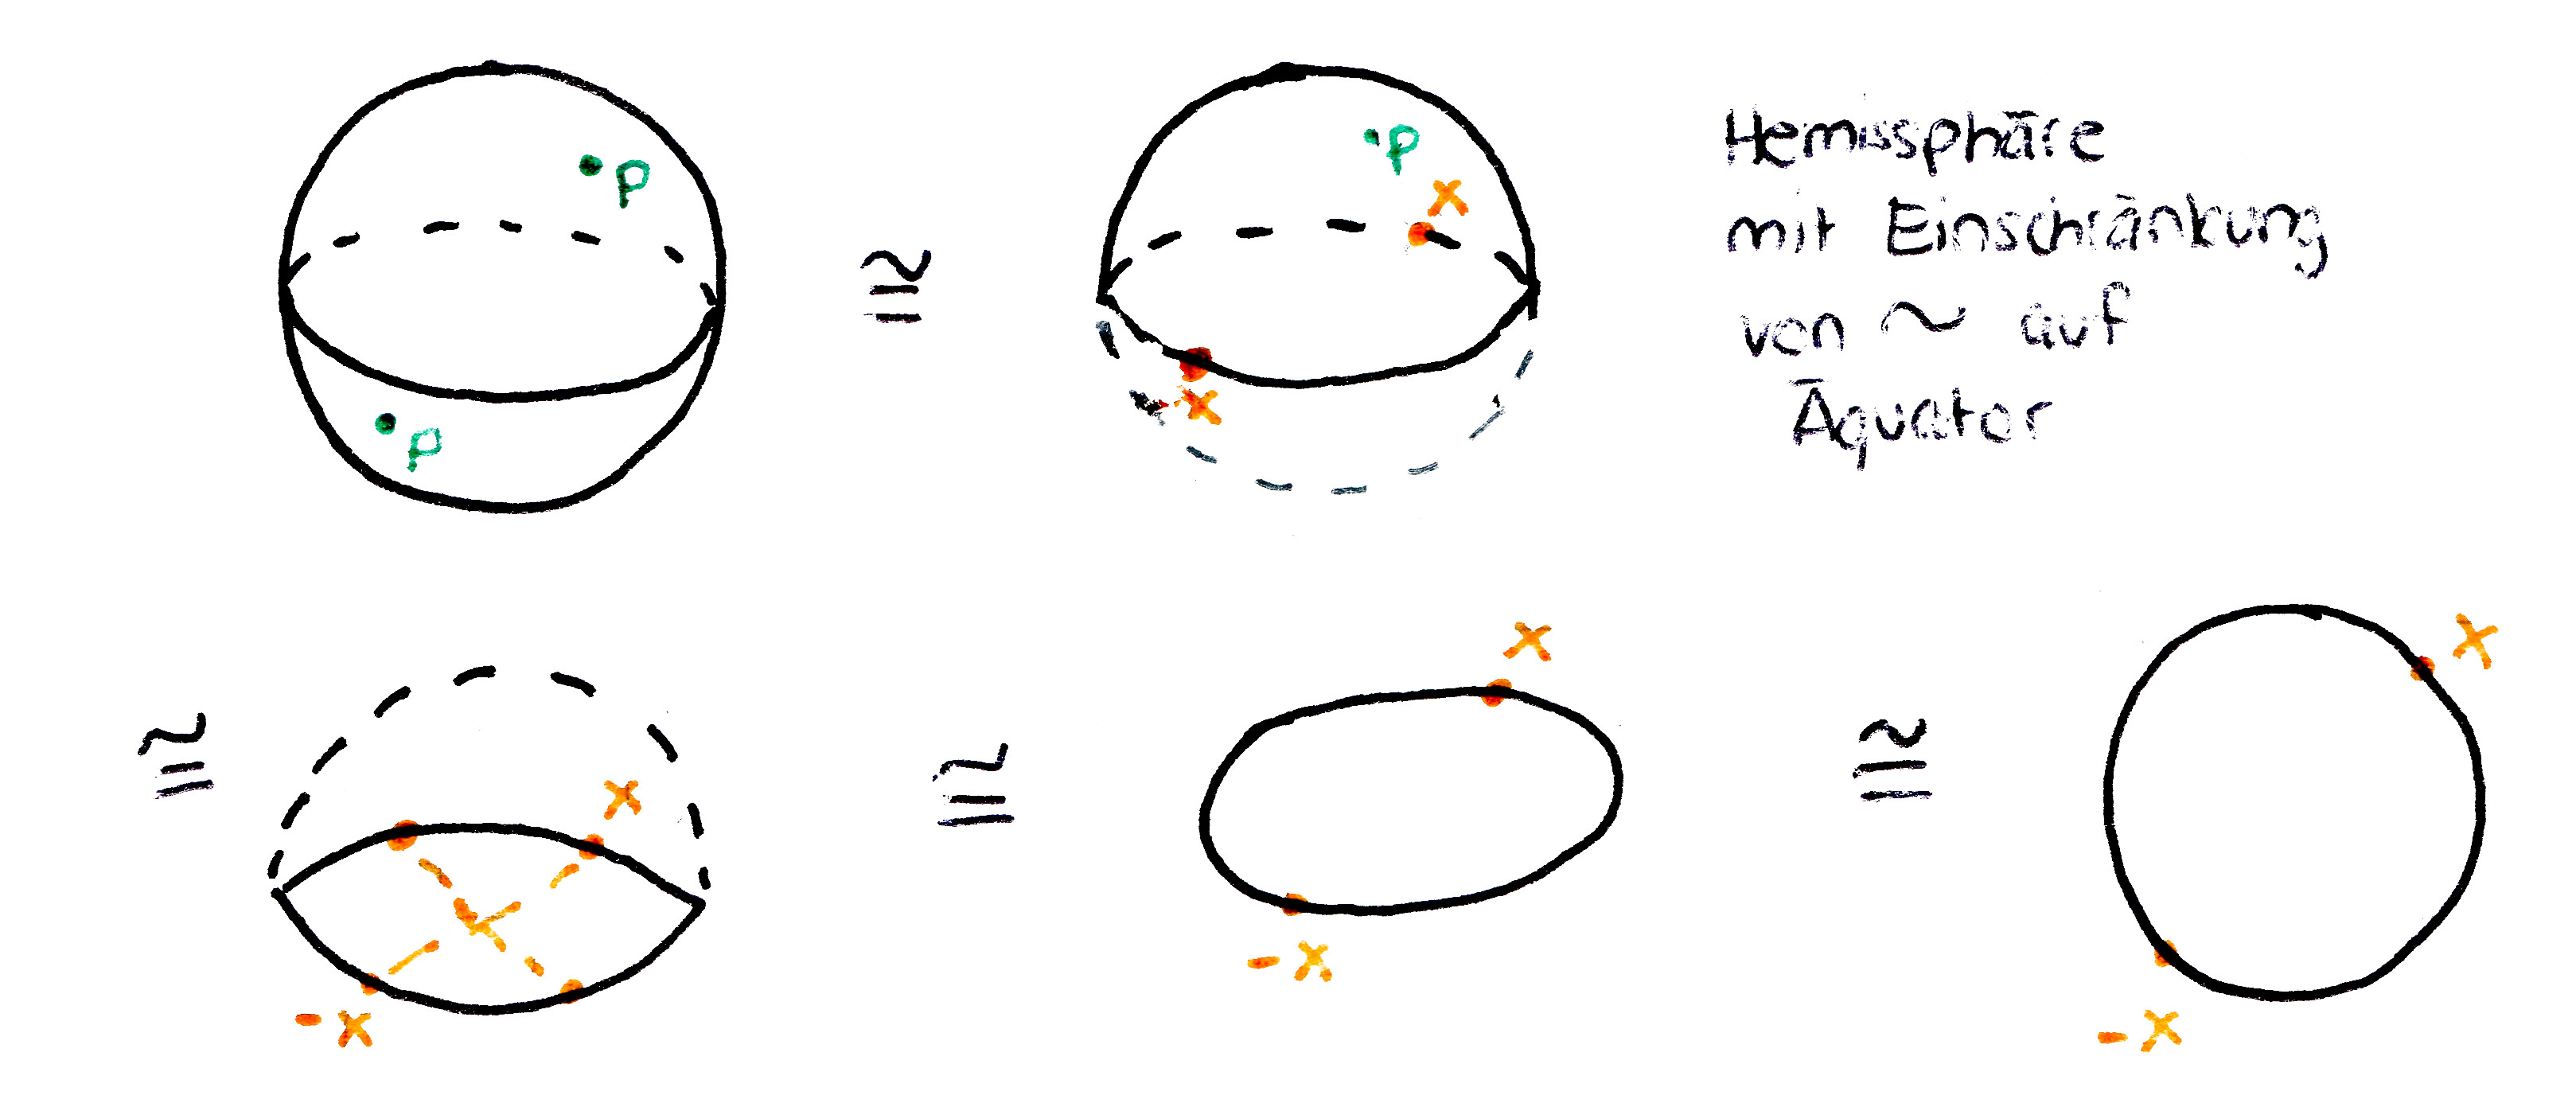 p
p
≅
p
x
-x
Hemissphäre
mit Einschränkung
von ~ auf
Äquator
≅
x
-x
≅
x
-x
≅
x
-x